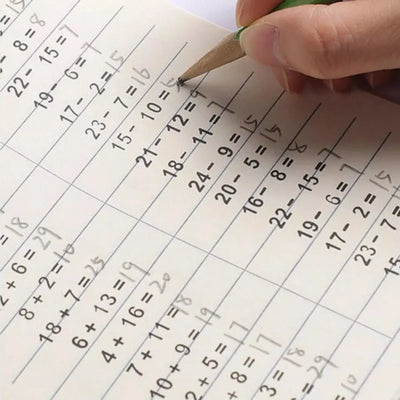 15
- 8= 8
22- 15= 7
19- 6= 7
17- 2= 15
23- 7= 16
15- 10=
21- 12= 9
18- 11= 7
24- 9= 15
20- 5= 15
16- 8= 8
22- 15= 7
19- 6= 7
17- 2= 15
23- 7=
15
= 18
2+6= 29
8+2= 10
18+7= 25
6+13= 19
4+16= 20
7+11= 18
10+9= 19
2+5= 17
+8= 17
3= 18
= 29
= 10